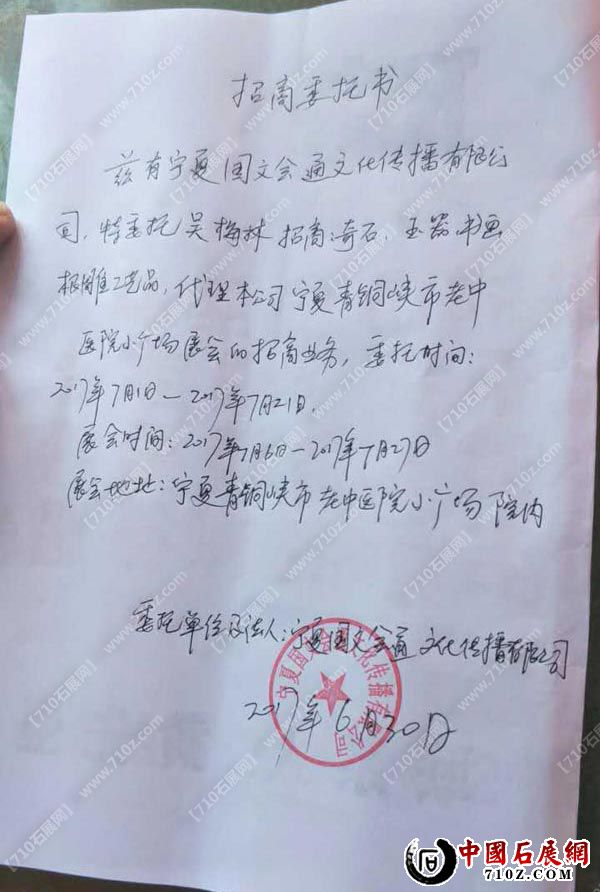 招商委托书
兹有宁夏国文会通文化传播有限公
司，特委托吴梅林招商:奇石、玉器、书画
根雕工艺品，代理本公司宁夏青铜峡市老中
医院小广场展会的招商业务，委托时间：
2017年7月1日—2017年7月21日，
展会时间：2017年7月6日—2017年7月27日
展会地址：宁夏青铜峡市老中医院小广场院内
委托单位及法人：宁夏国文会通文化传播有限公司
宁夏国文会通文化传播有限公司
2017年6月30日
【710石展网】
www.710z.com
中國石展網
710Z.COM